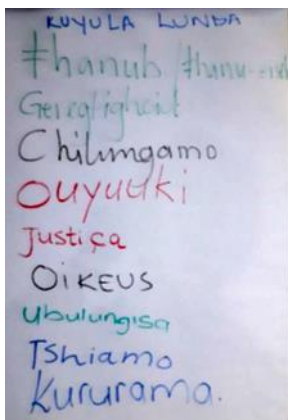 KUYULA LUNDA
ǂhanub /ǂhanu-
Geregtigheid
Chilungamo
Ouyuuki
Justiça
OIKEUS
Ubulungisa
Tshiamo
Kururama.